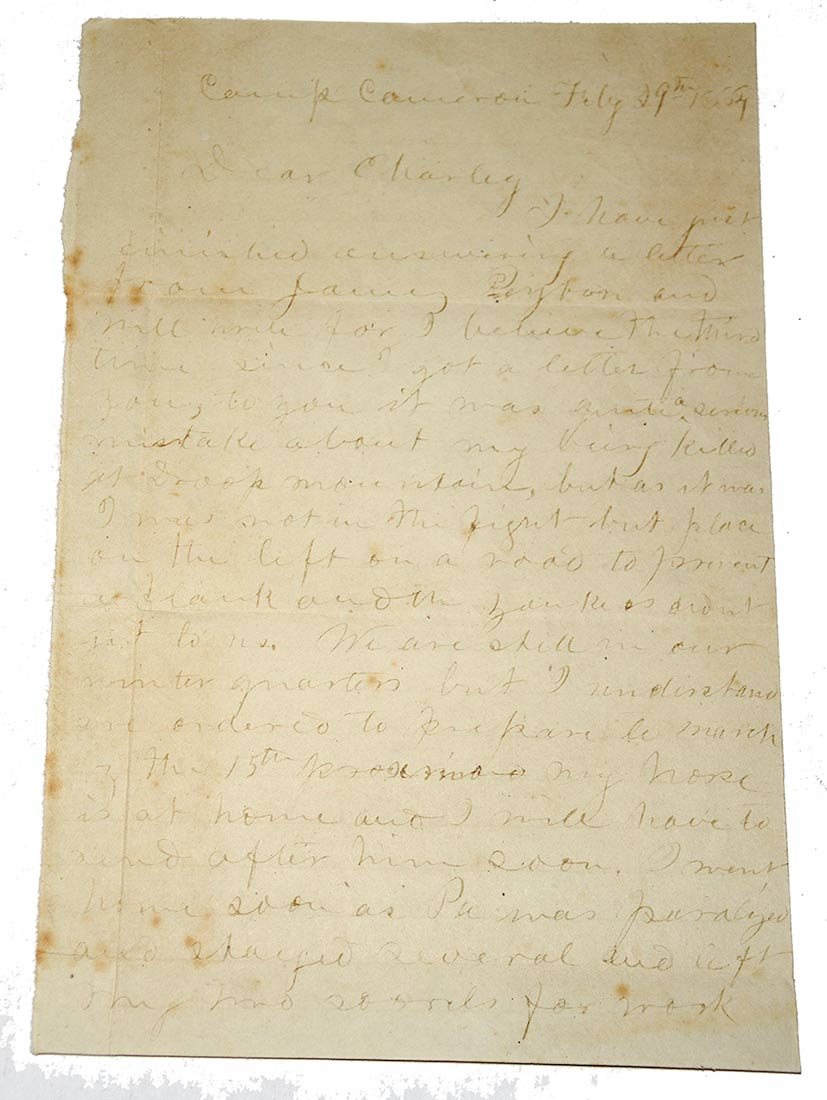 Camp Cameron Feby 29th 1864
Dear Charley
I have just
finished answering a letter
from James Peyton and
will write for I believe the third
time since I got a letter from
you, to you it was quite a serious
mistake about my being killed
at Droop mountain, but as it was
I was not in the fight but place
on the left on a road to prevent
a flank and the yankees didnt
get to us. We are still in our
winter quarters but I understand
are ordered to prepare to march
by the 15th proximo my horse
is at home and I will have to
send after him soon. I went
home soon as Pa was paralyzed
and staied several and left
my two sorrels for work